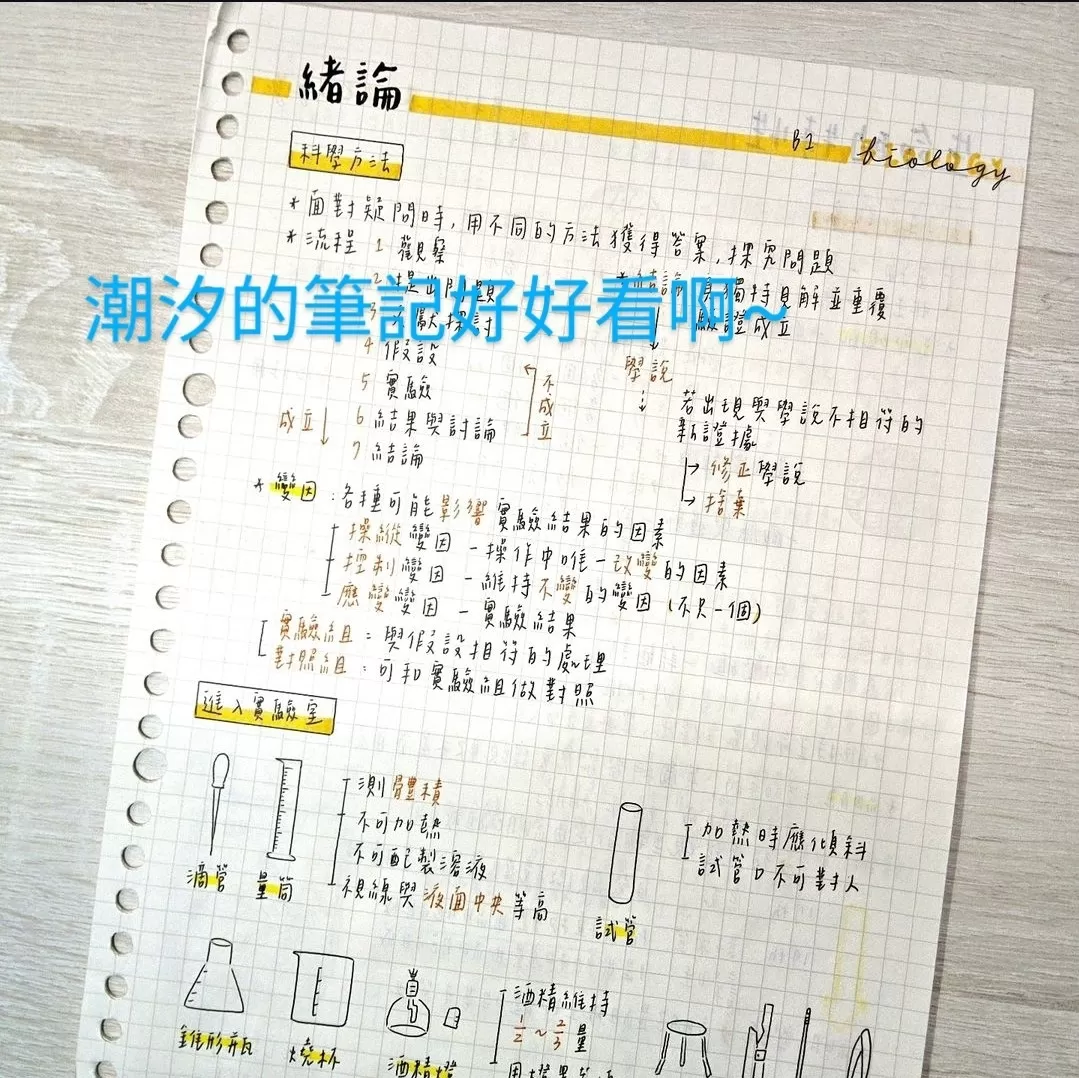 緒論
B1 biology
科學方法
*面對疑問時,用不同的方法獲得答案,探究問題
*流程 1 觀察
2 提出問題
3 文獻探討
4 假設
5 實驗
6 結果與討論
7 結論
成立
不成立
*結論:具獨特見解並重覆
驗證成立
學說
若出現與學說不相符的
新證據
修正學說
捨棄
潮汐的筆記好好看啊~
*變因:各種可能影響實驗結果的因素
操縱變因-操作中唯一改變的因素
控制變因-維持不變的變因(不只一個)
應變變因-實驗結果
實驗組:與假設相符的處理
對照組:可和實驗組做對照
進入實驗室
滴管
量筒
測體積
不可加熱
不可配製溶液
視線與液面中央等高
試管
加熱時應傾斜
試管口不可對人
錐形瓶
燒杯
酒精燈
酒精維持
1/2~2/3量